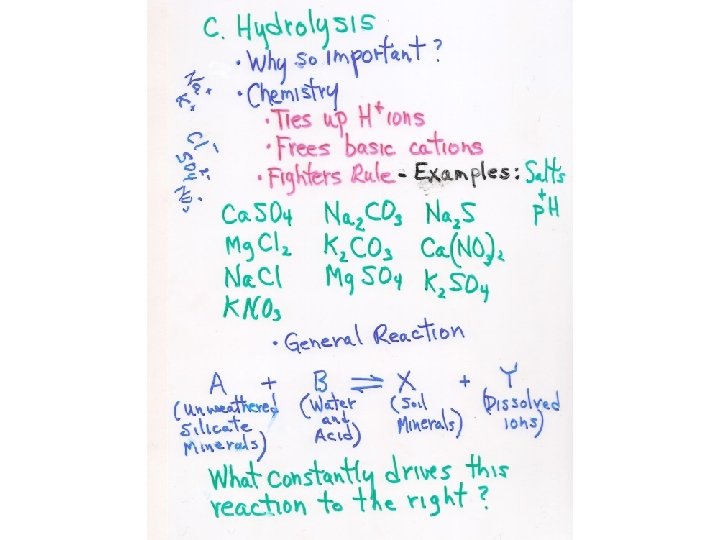 C. Hydrolysis
• Why so important?
• Chemistry
Na+
K+
Cl-
SO4 2-
NO3-
• Ties up H+ ions
• Frees basic cations
• Fighters Rule - Examples: Salts + pH
CaSO4 Na2CO3 Na2S
MgCl2 K2CO3 Ca(NO3)2
NaCl MgSO4 K2SO4
KNO3
• General Reaction
A + B ⇌ X + Y
(Unweathered Silicate Minerals) (Water and Acid) (Soil Minerals) (Dissolved ions)
What constantly drives this
reaction to the right?